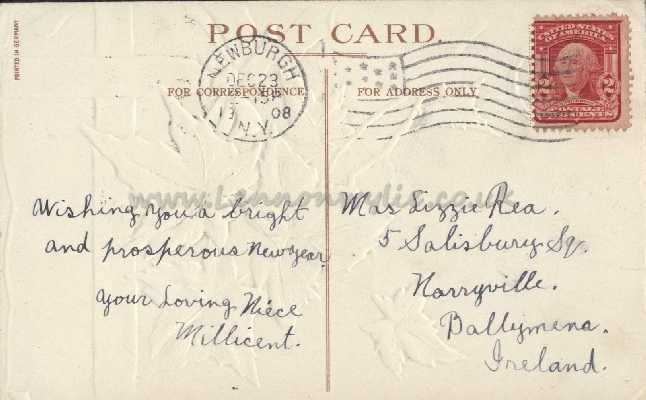 POST CARD.
PRINTED IN GERMANY
NEWBURGH
DEC 23
1908
N.Y.
2 UNITED STATES OF AMERICA 2
POSTAGE
CENTS
FOR CORRESPONDENCE
FOR ADDRESS ONLY
www.Lennonwylie.co.uk
Wishing you a bright
and prosperous New Year
Your Loving Niece
Millicent.
Mrs Lizzie Rea.
5 Salisbury Sq.
Harryville.
Ballymena.
Ireland.